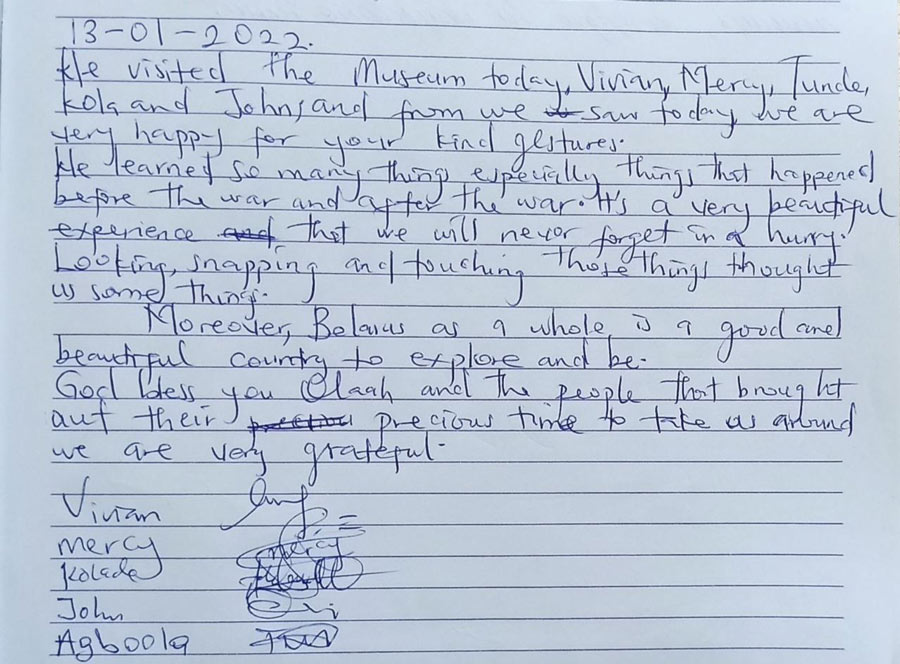 13-01-2022.
We visited the Museum today, Vivian, Mercy, Tunde,
Kola and John, and from we saw today, we are
very happy for your kind gestures.
We learned so many things especially things that happened
before the war and after the war. It's a very beautiful
experience and that we will never forget in a hurry.
Looking, snapping and touching those things thought
us some things.
Moreover, Belarus as a whole is a good and
beautiful country to explore and be.
God bless you and the people that brought
out their precious time to take us around
we are very grateful.
Vivian
Mercy mercy
Kolade
John
Agboola